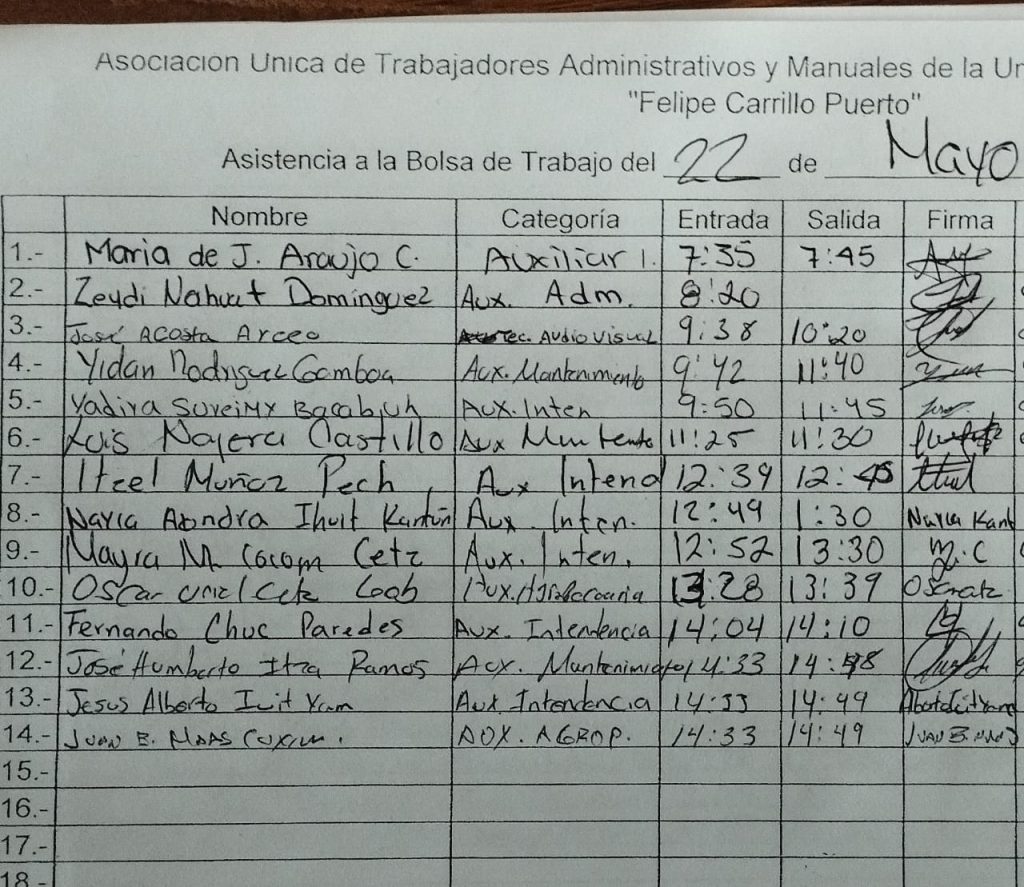 Asociación Única de Trabajadores Administrativos y Manuales de la Un
"Felipe Carrillo Puerto"
Asistencia a la Bolsa de Trabajo del 22 de Mayo
Nombre Categoría Entrada Salida Firma
1.- Maria de J. Araujo C. Auxiliar 1. 7:35 7:45
2.- Zeydi Nahuat Dominguez Aux. Adm. 8:20
3.- José Acosta Arceo Tec. Audio visual 9:38 10:20
4.- Yidan Rodriguez Gamboa Aux. Mantenimiento 9:42 11:40
5.- Yadira Aux. Inten 9:50 11:45
6.- Luis Najera Castillo Aux 11:25 11:30
7.- Itzel Muñoz Pech Aux Intend 12:39 12:45
8.- Ihuit Kantún Aux. Inten. 12:49 1:30
9.- Mayra M. Cocom Cetz Aux. Inten. 12:52 13:30
10.- Oscar Uriel Cetz Coob 13:28 13:39
11.- Fernando Chuc Paredes Aux. Intendencia 14:04 14:10
12.- José Humberto Itza Ramos Aux. 14:33
13.- Jesus Alberto Aux Intendencia 14:33 14:49
14.- Juan B. Maas AUX. AGROP. 14:33 14:49 Juan B.
15.-
16.-
17.-
18.-